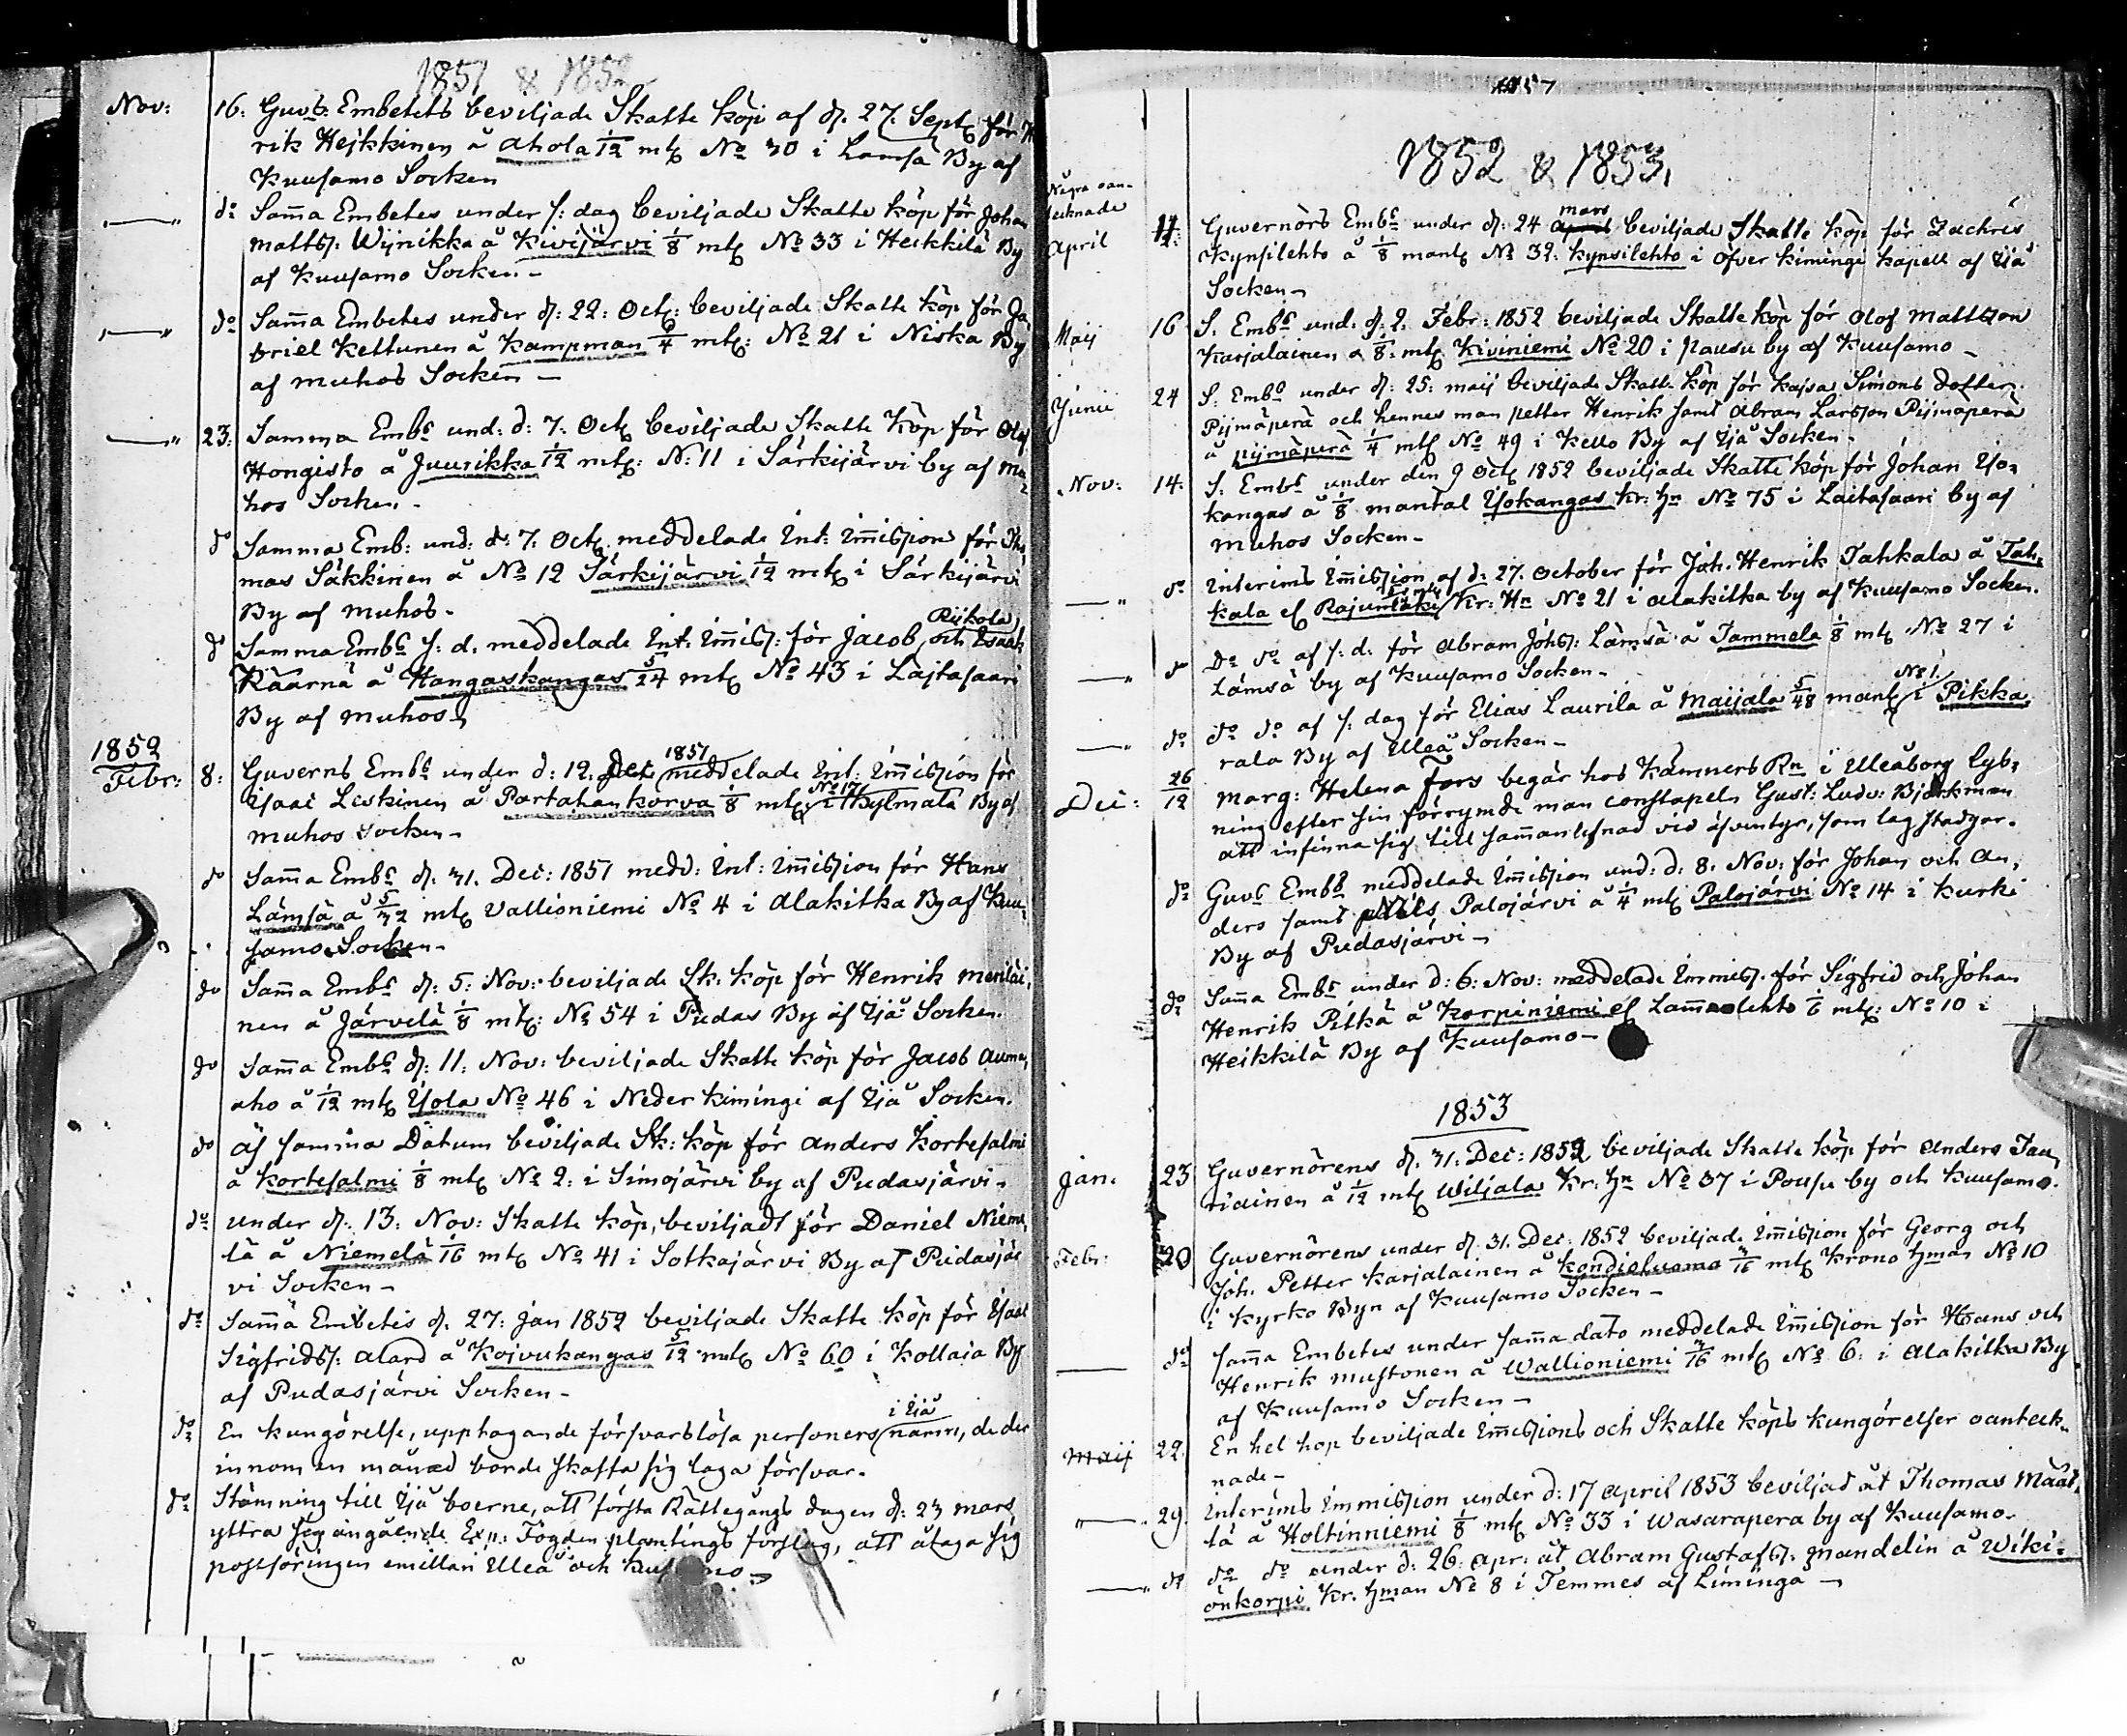 1851 & 1852
Nov: 16. Guvs. Embetets beviljade Skatte köp af d. 27. Sept för
rik Hejkkinen å Ahola 1/12 mtl No 30 i Lamsä By af
Kuusamo Socken
do Samma Embetes under s: dag beviljade Skatte köp för Johan
Mattss. Wijnikka å Kivijärvi 1/8 mtl No 33 i Heikkilä By
af Kuusamo Socken.-
do Samma Embetes under d: 22: Oct: beviljade Skatte köp för Ga
briel Kettunen å Kampman 1/4 mtl: No 21 i Niska By
af Muhos Socken -
23: Samma Embs und: d: 7. Oct beviljade Skatte köp för Olof
Hongisto å Juurikka 1/12 mtl: N: 11 i Särkijärvi by af Mu
hos Socken.-
do Samma Emb: und: d: 7. Oct. meddelade Int: Immission för Tho
mas Säkkinen å No 12 Särkijärvi 1/12 mtl i Särkijärvi
By af Muhos-
Riikola
do Samma Embs s: d. meddelade Int. Immiss: för Jacob och Esaak
Käärnä å Hangaskangas 5/24 mtl No 43 i Lajtasaari
By af Muhos
1852
1851
Febr: 8: Guverns Embs under d: 12. Dec meddelade Int: Immission för
No 17
Isaac Leskinen å Partahankorva 1/8 mtl i Kylmälä By af
Muhos Socken-
do Samma Embs d: 31. Dec: 1851 medd: Int: Immission för Hans
Lämsä å 5/32 mtl Vallioniemi No 4 i Alakitka By af Kuu
samo Socken-
do Samma Embs d: 5: Nov: beviljade Sk: köp för Henrik Meriläi
nen å Järvelä 1/8 mtl: No 54 i Pudas By af Ijå Socken.
do Samma Embs d: 11: Nov: beviljade Skatte köp för Jacob Auma
aho å 1/12 mtl Yola No 46 i Neder Kimingi af Ijå Socken.
do Af samma Datum beviljade Sk: köp för Anders Kortesalmi
å Kortesalmi 1/8 mtl No 2: i Simojärvi by af Pudasjärvi-
do under d: 13: Nov: Skatte köp, beviljadt för Daniel Nieme
lä å Niemelä 1/16 mtl No 41 i Sotkajärvi By af Pudasjär
vi Socken-
do Samma Embetes d. 27: Jan 1852 beviljade Skatte köp för Isaac
Sigfridss: Alard å Koivukangas 5/12 mtl No 60 i Kollaja By
af Pudasjärvi Socken-
i Ijå
do En kungörelse, upptagande försvarslösa personers namn, de der
innom en månad borde skaffa sig laga försvar.
do Stämning till Ijå boerne, att första Rättegångs dagen d: 23 Mars
yttra sig angående Exp: Fogden Plantings förslag, att åtaga sig
postföringen emellan Uleå och Kusamo-
1852 & 1853,
Några oan-
tecknade
mars
April 11: Guvernörs Embs under d: 24 April beviljade Skatte köp för Zachris
Kynsilehto å 1/8 mantl No 32: Kynsilehto i Öfver Kimingi kapell af Ijå
Socken-
Maij 16 S. Embs und. d: 2. Febr: 1852 beviljade Skatte köp för Olof Mattsson
Karjalainen å 1/8: mtl Kiviniemi No 20 i Pausu by af Kuusamo-
Junii 24 S: Embs under d: 25: Maij beviljade Skatt. köp för Kajsa Simons Dotter
Pijmäperä och hennes man Petter Henrik samt Abram Larsson Pijmäperä
å Pijmäperä 1/4 mtl No 49 i Kello By af Ijå Socken.
Nov: 14: S. Embs under den 9 Oct 1852 beviljade Skatte köp för Johan Yo-
kangas å 1/8 mantal Yokangas Kr: Hn No 75 i Laitasaari by af
Muhos Socken-
do Interims Immission af d: 27. October för Joh. Henrik Tahkala å Tah-
kala el Rajumäki Kr: Hn No 21 i Alakitka by af Kuusamo Socken.
do Do do af s: d. för Abram Johss: Lämsä å Tammela 1/8 mtl No 27 i
Lämsä by af Kuusamo Socken-
No 1
do do do af s: dag för Elias Laurila å Maijala 5/48 mantl i Pikka
rala By af Uleå Socken-
Dec: 26/12 Marg: Helena Fors begär hos Kämners Rn i Uleåborg lys-
ning efter sin förrymde man Constapeln Gust: Ludv: Björkman
att infinna sig till sammanlefnad vid äfventyr, som lag stadgar.
do Guvs Embs meddelade Immission und: d: 8. Nov: för Johan och An
ders samt Nils Palojärvi å 1/4 mtl Palojärvi No 14 i Kurki
By af Pudasjärvi-
do Samma Embs under d: 6: Nov: meddelade Immiss. för Sigfrid och Johan
Henrik Pitkä å Korpiniemi el Lammaslehto 1/6 mtl: No 10 i
Heikkilä By af Kuusamo-
1853
Jan. 23 Guvernörens d. 31. Dec: 1852 beviljade Skatte köp för Anders Tau
riainen å 1/12 mtl Wiljala Kr. Hn No 37 i Pousu by och Kuusamo.
Febr: 20 Guvernörens under d. 31. Dec: 1852 beviljade Immission för Georg och
Joh. Petter Karjalainen å Kondioluoma 3/16 mtl Krono Hman No 10
i Kyrko Byn af Kuusamo Socken-
do samma Embetes under samma dato meddelade Immission för Hans och
Henrik Mustonen å Wallioniemi 3/16 mtl No 6: i Alakitka By
af Kuusamo Socken-
Maij 22. En hel hop beviljade Immissions och Skatte köps kungörelser oanteck-
nade-
29. Interims Immission under d: 17 April 1853 beviljad åt Thomas Määt
tä å Holtinniemi 1/8 mtl No 33 i Wasarapera by af Kuusamo.
do do do under d: 26: Apr: åt Abram Gustafss. Mandelin å Wiki-
önkorpi Kr. Hman No 8 i Temmes af Limingå-